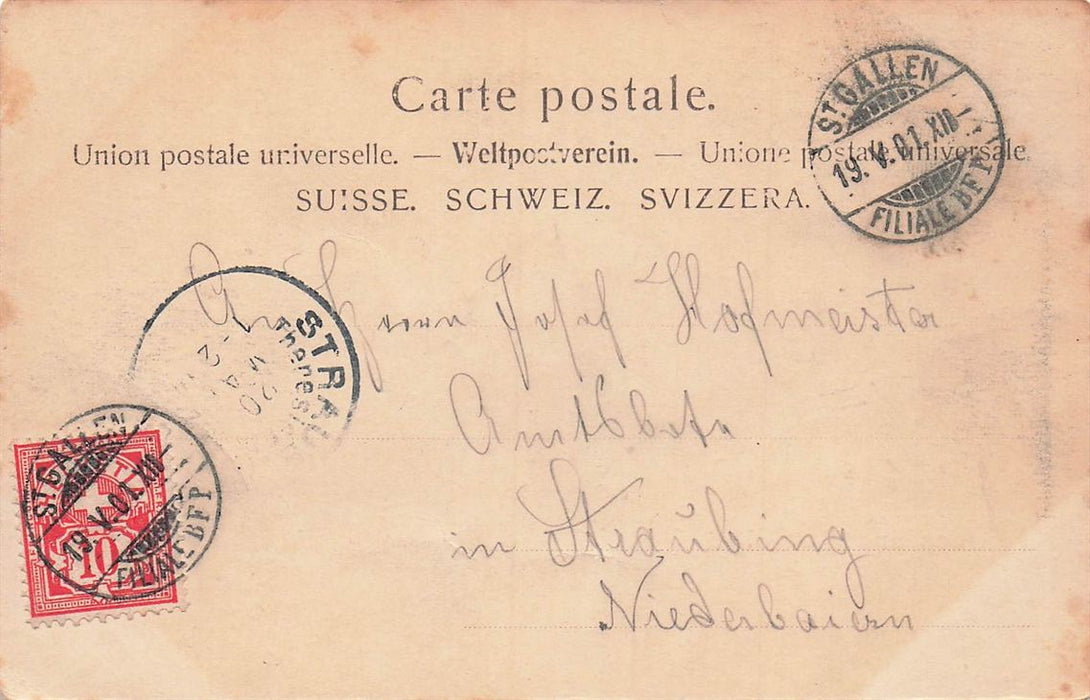 Carte postale.
Union postale universelle. — Weltpostverein. — Unione postale universale.
SUISSE. SCHWEIZ. SVIZZERA.
ST. GALLEN
19. V. 01. XII
FILIALE BFP
An Herrn Josef Hofmeister
Amtsbote
in Straubing
Niederbaiern
STRAU
Theres
20
ST. GALLEN
19. V. 01. XII
FILIALE BFP
10